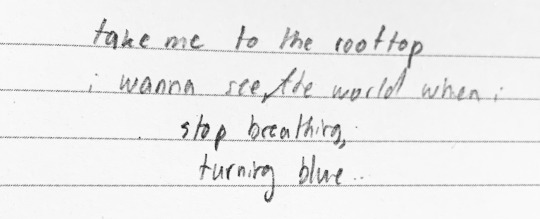 take me to the rooftop
i wanna see the world when i
stop breathing,
turning blue..